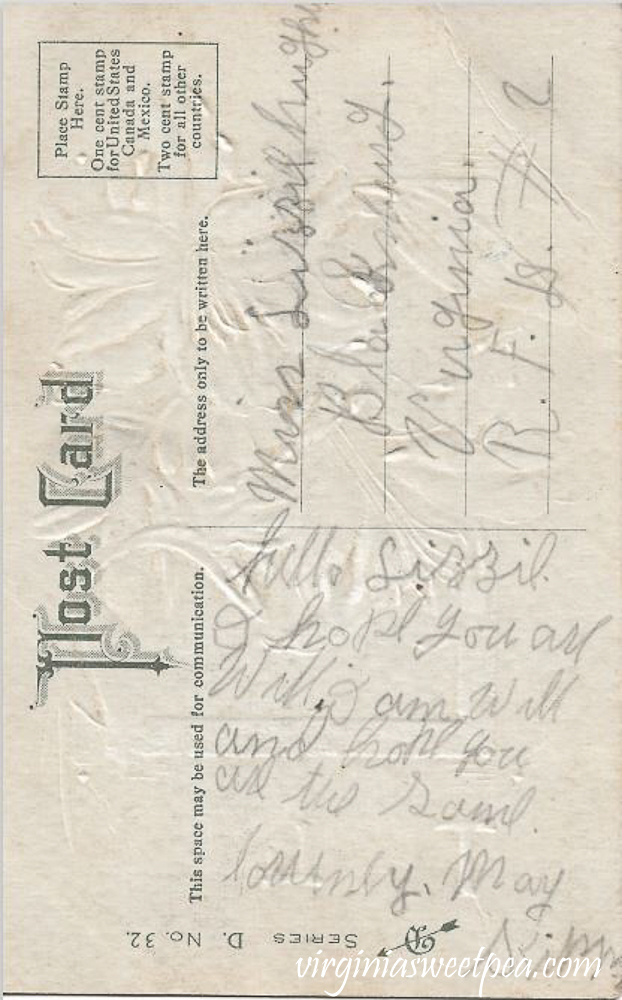 Post Card
Place Stamp
Here.
One cent stamp
for United States
Canada and
Mexico.
Two cent stamp
for all other
countries.
This space may be used for communication.
The address only to be written here.
hello Lizzie.
I hope you are
Well, I am Well
and hope you
are the same.
May
Miss Lizzie
Virginia.
R. F. D. # 2
SERIES D. No. 32.
virginiasweetpea.com